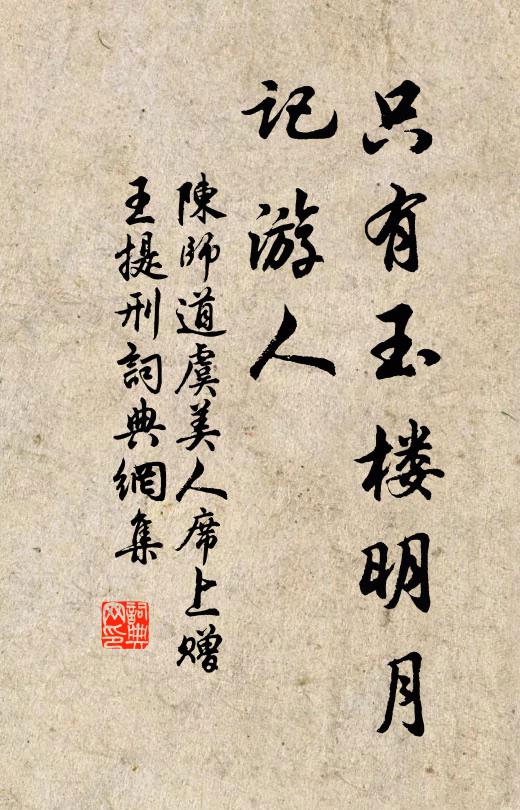 只有玉楼明月
记游人
陳師道虞美人席上赠
王提刑詞典網集
詞典网印